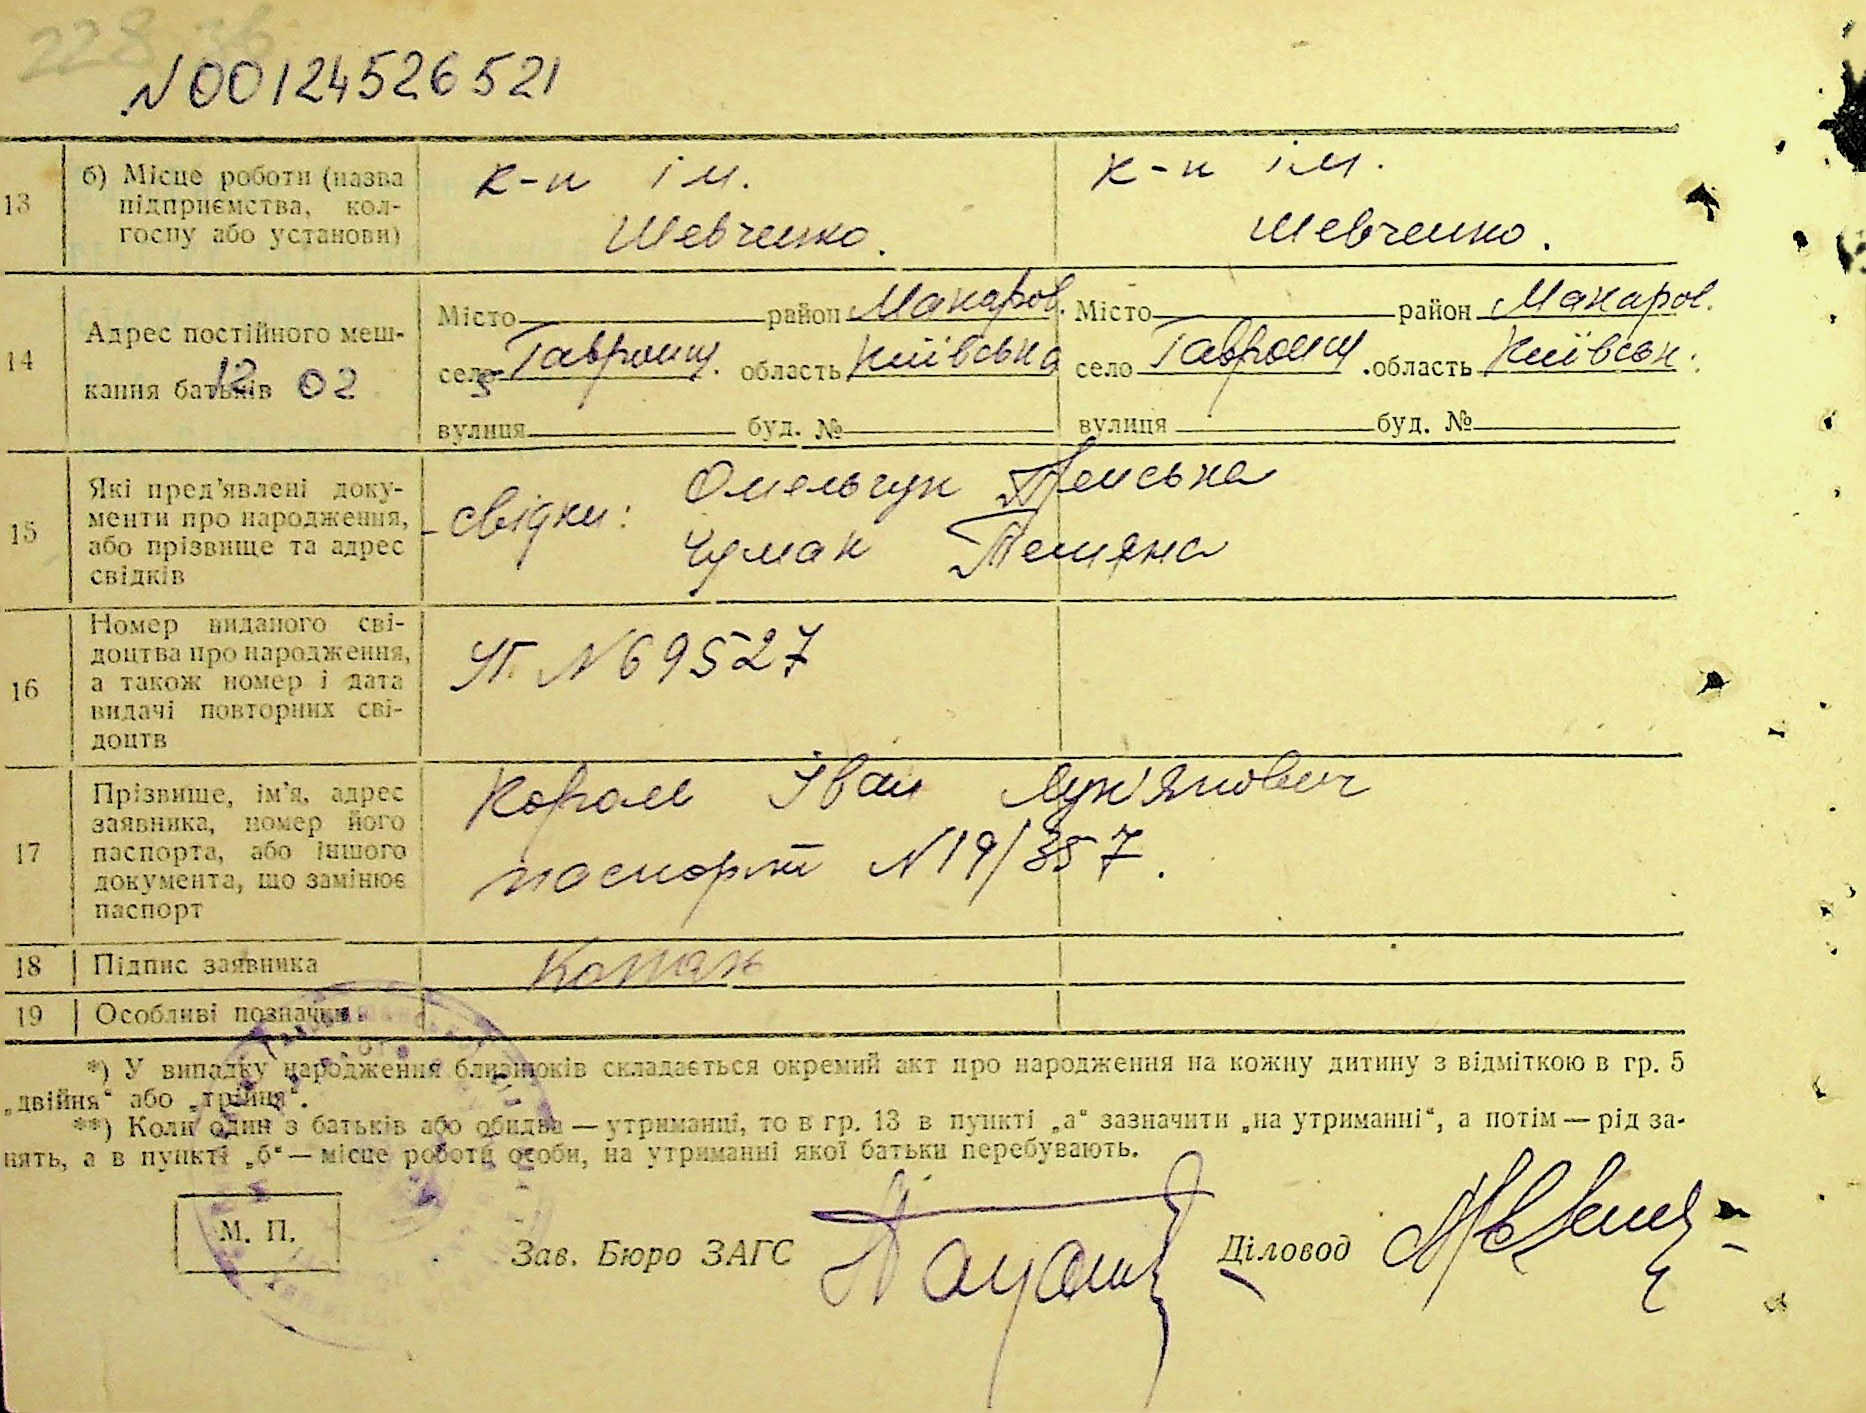 228 36
N00124526521
13
б) Місце роботи (назва
підприємства, кол-
госпу або установи)
к-п ім.
Шевченко.
к-п ім.
Шевченко.
14
Адрес постійного меш-
кання батьків
12 02
Місто район Макаров.
село Гавронщ. область Київська
вулиця буд. №
Місто район Макаров.
село Гавронщ. область Київськ.
вулиця буд. №
15
Які пред'явлені доку-
менти про народження,
або прізвище та адрес
свідків
свідки: Омельчук
Чуман Тетяна
16
Номер виданого сві-
доцтва про народження,
а також номер і дата
видачі повторних сві-
доцтв
УП. N69527
17
Прізвище, ім'я, адрес
заявника, номер його
паспорта, або іншого
документа, що замінює
паспорт
Іван Лук'янович
паспорт N19/357.
18
Підпис заявника
19
Особливі позначки
*) У випадку народження близнюків складається окремий акт про народження на кожну дитину з відміткою в гр. 5
„двійня“ або „трійця“.
**) Коли один з батьків або обидва — утриманці, то в гр. 13 в пункті „а“ зазначити „на утриманні“, а потім — рід за-
нять, а в пункті „б“ — місце роботи особи, на утриманні якої батьки перебувають.
М. П.
Зав. Бюро ЗАГС
Діловод